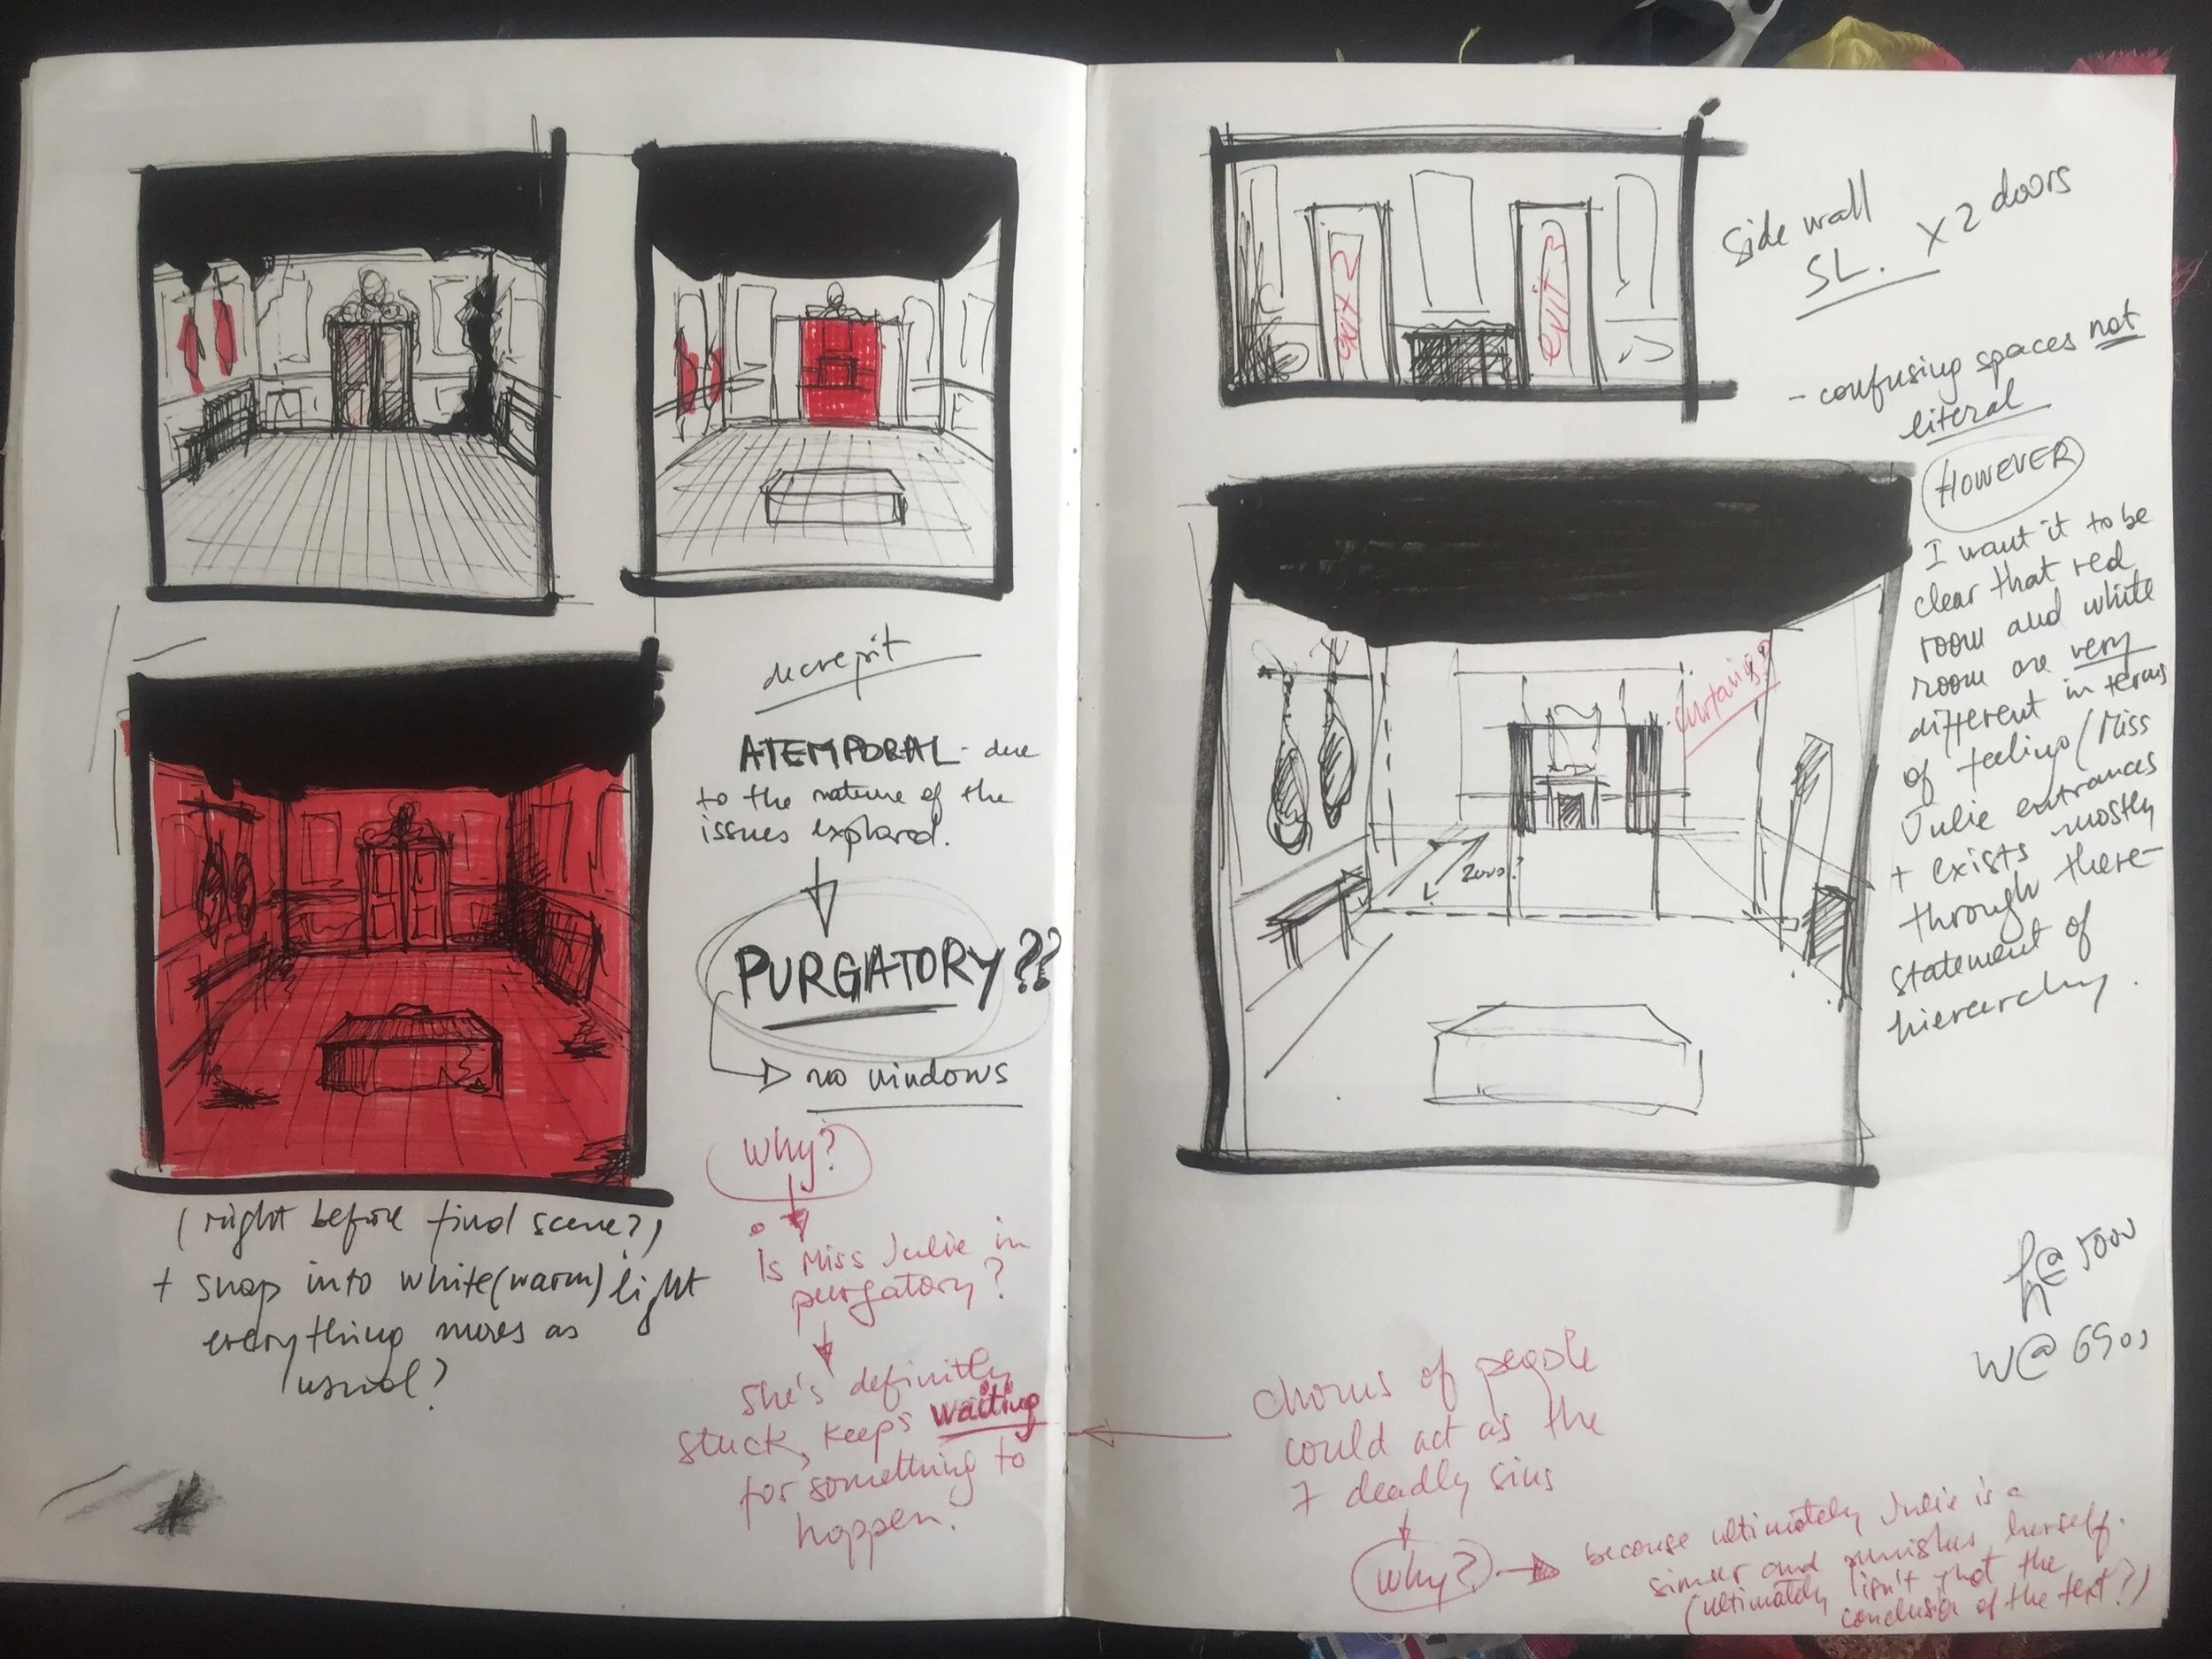 decrepit
ATEMPORAL - due
to the nature of the
issues explored.
PURGATORY??
no windows
why?
Is Miss Julie in
purgatory?
She's definitely
stuck, keeps waiting
for something to
happen.
(right before final scene?)
+ snap into white (warm) light
everything moves as
usual?
exit 2
exit 3
Side wall
SL. x 2 doors
- confusing spaces not
literal
HOWEVER
I want it to be
clear that red
room and white
room are very
different in terms
of feeling / Miss
Julie entrances
+ exists mostly
through there -
statement of
hierarchy.
curtains?
2000?
h@ 5000
W@ 6502
chorus of people
could act as the
7 deadly sins
why?
because ultimately Julie is a
sinner and punishes herself.
(ultimately isn't that the
conclusion of the text?)